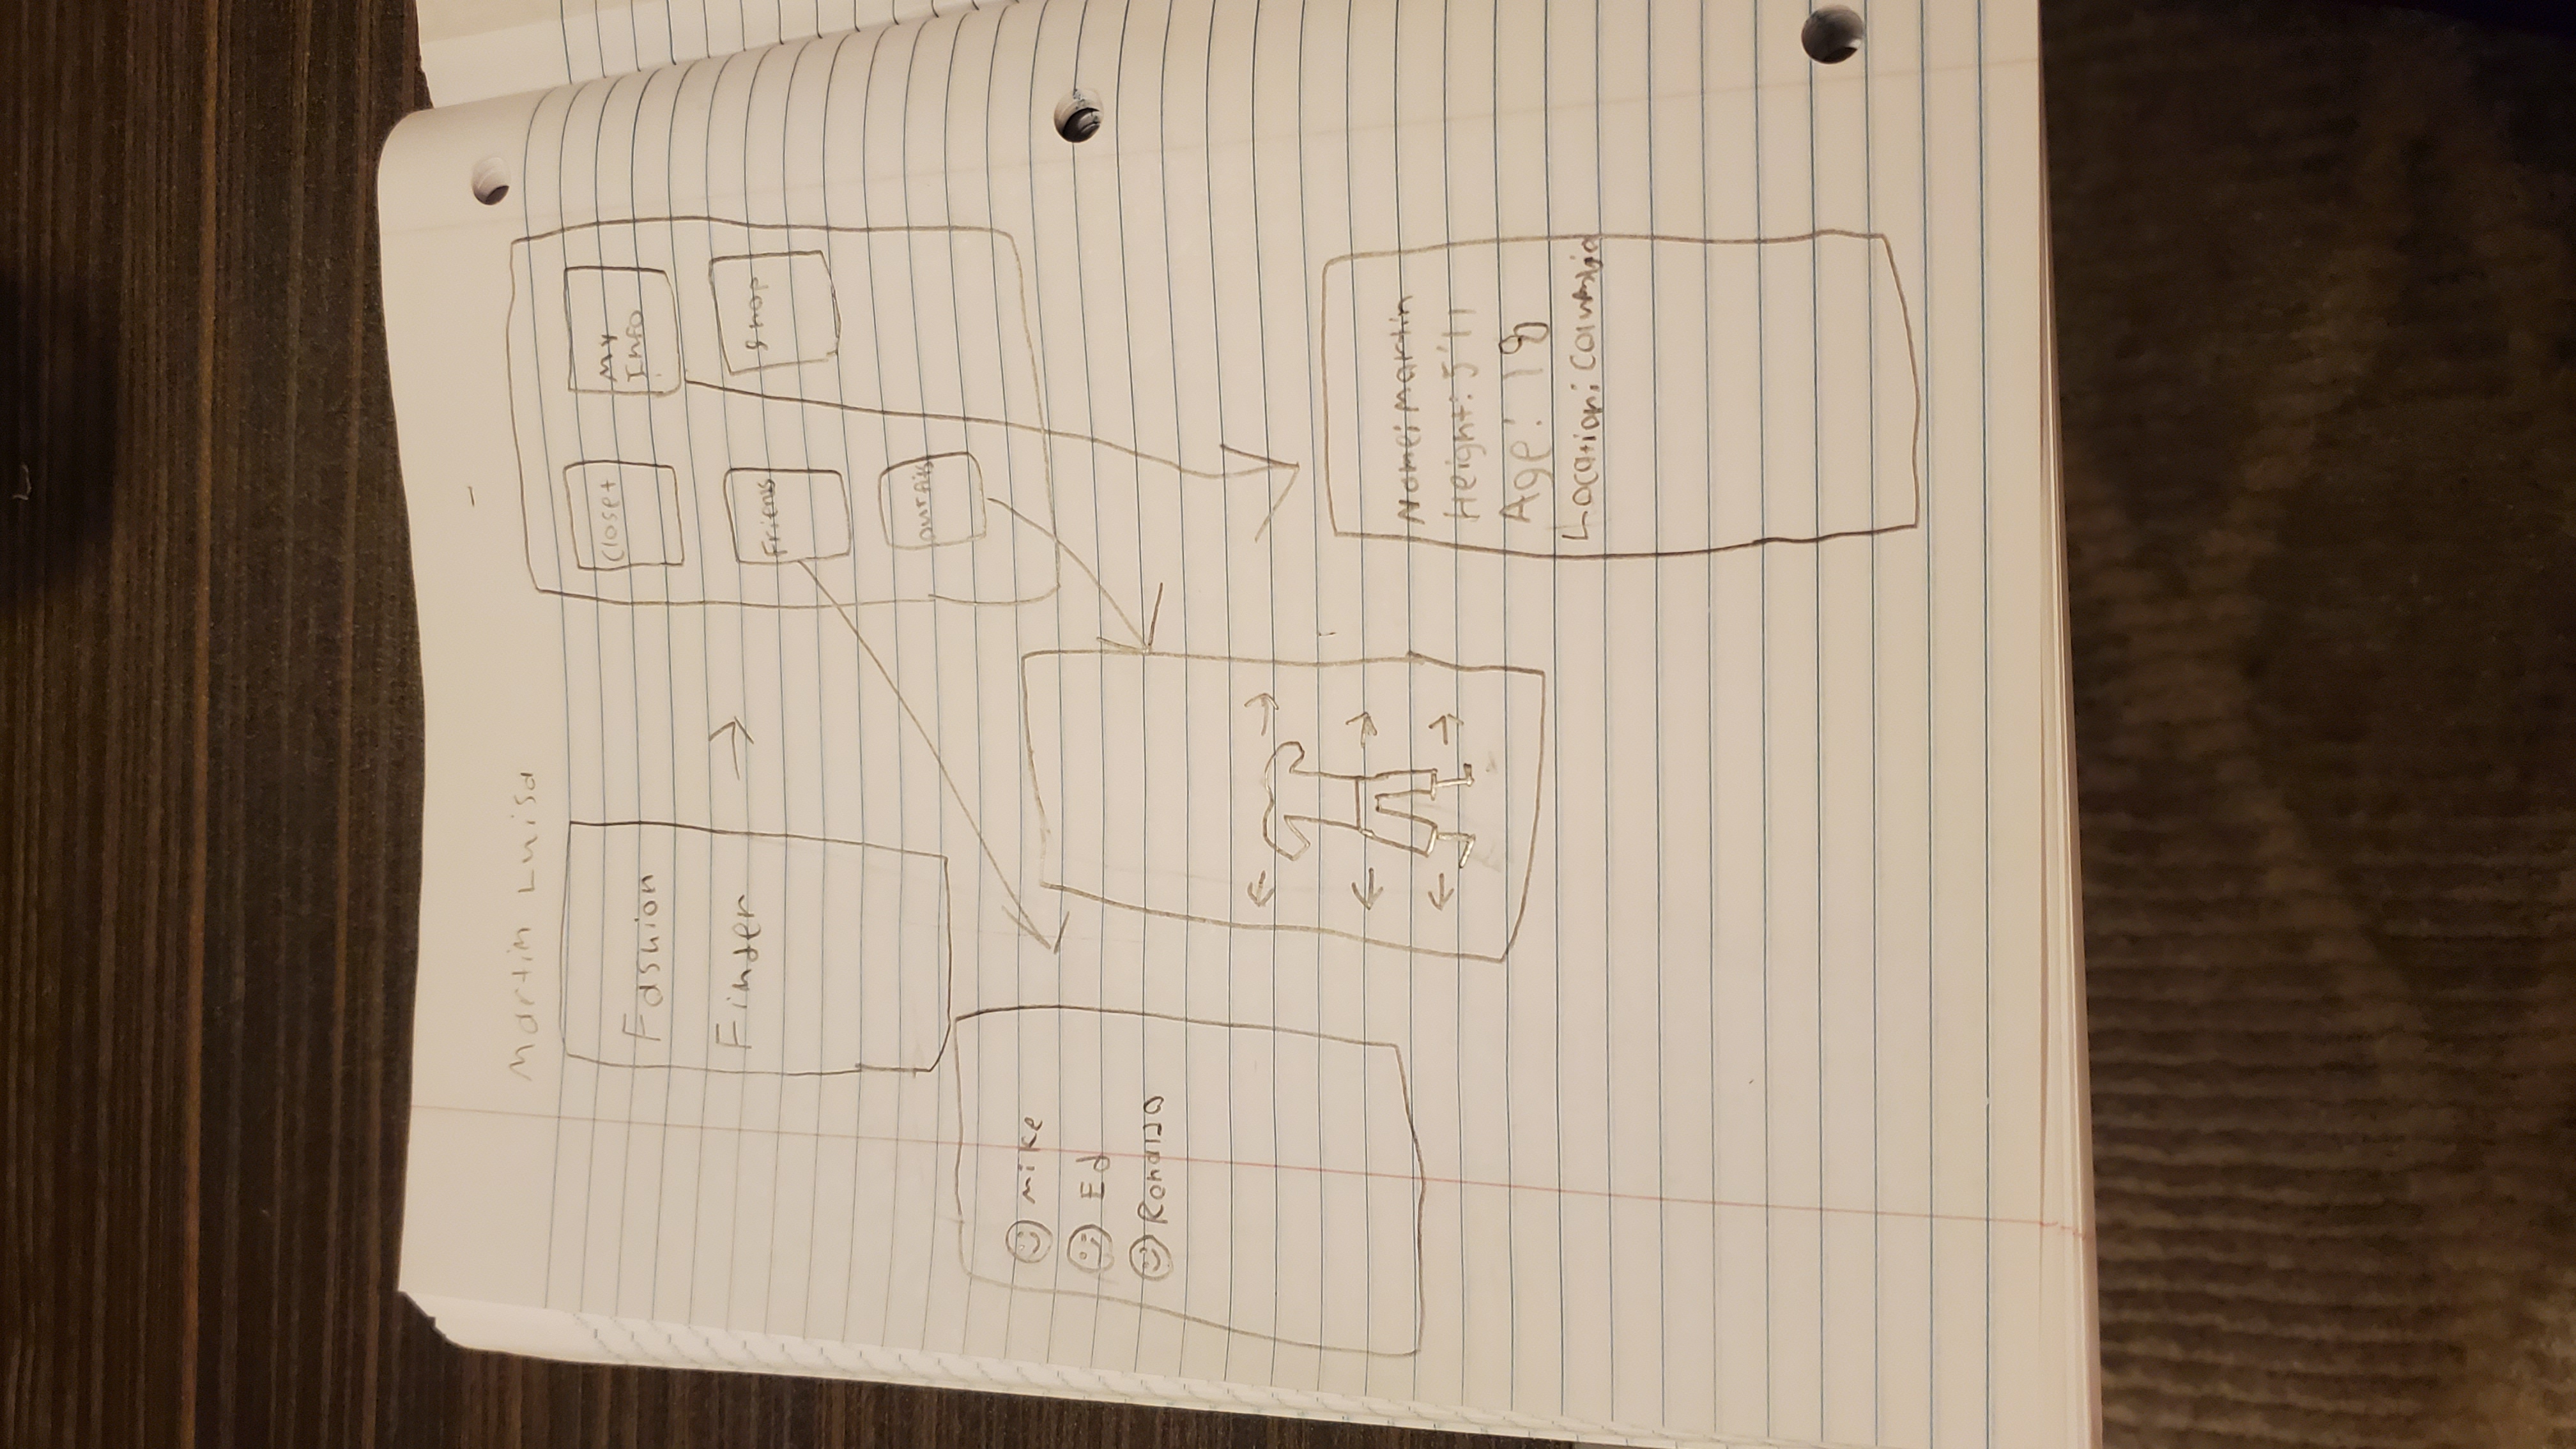 Martin Luisa
Fashion
Finder
Closet
My
Info
Friends
Shop
outfits
mike
Ed
Ronaldo
Name: Martin
Height: 5'11
Age: 18
Location: Columbia